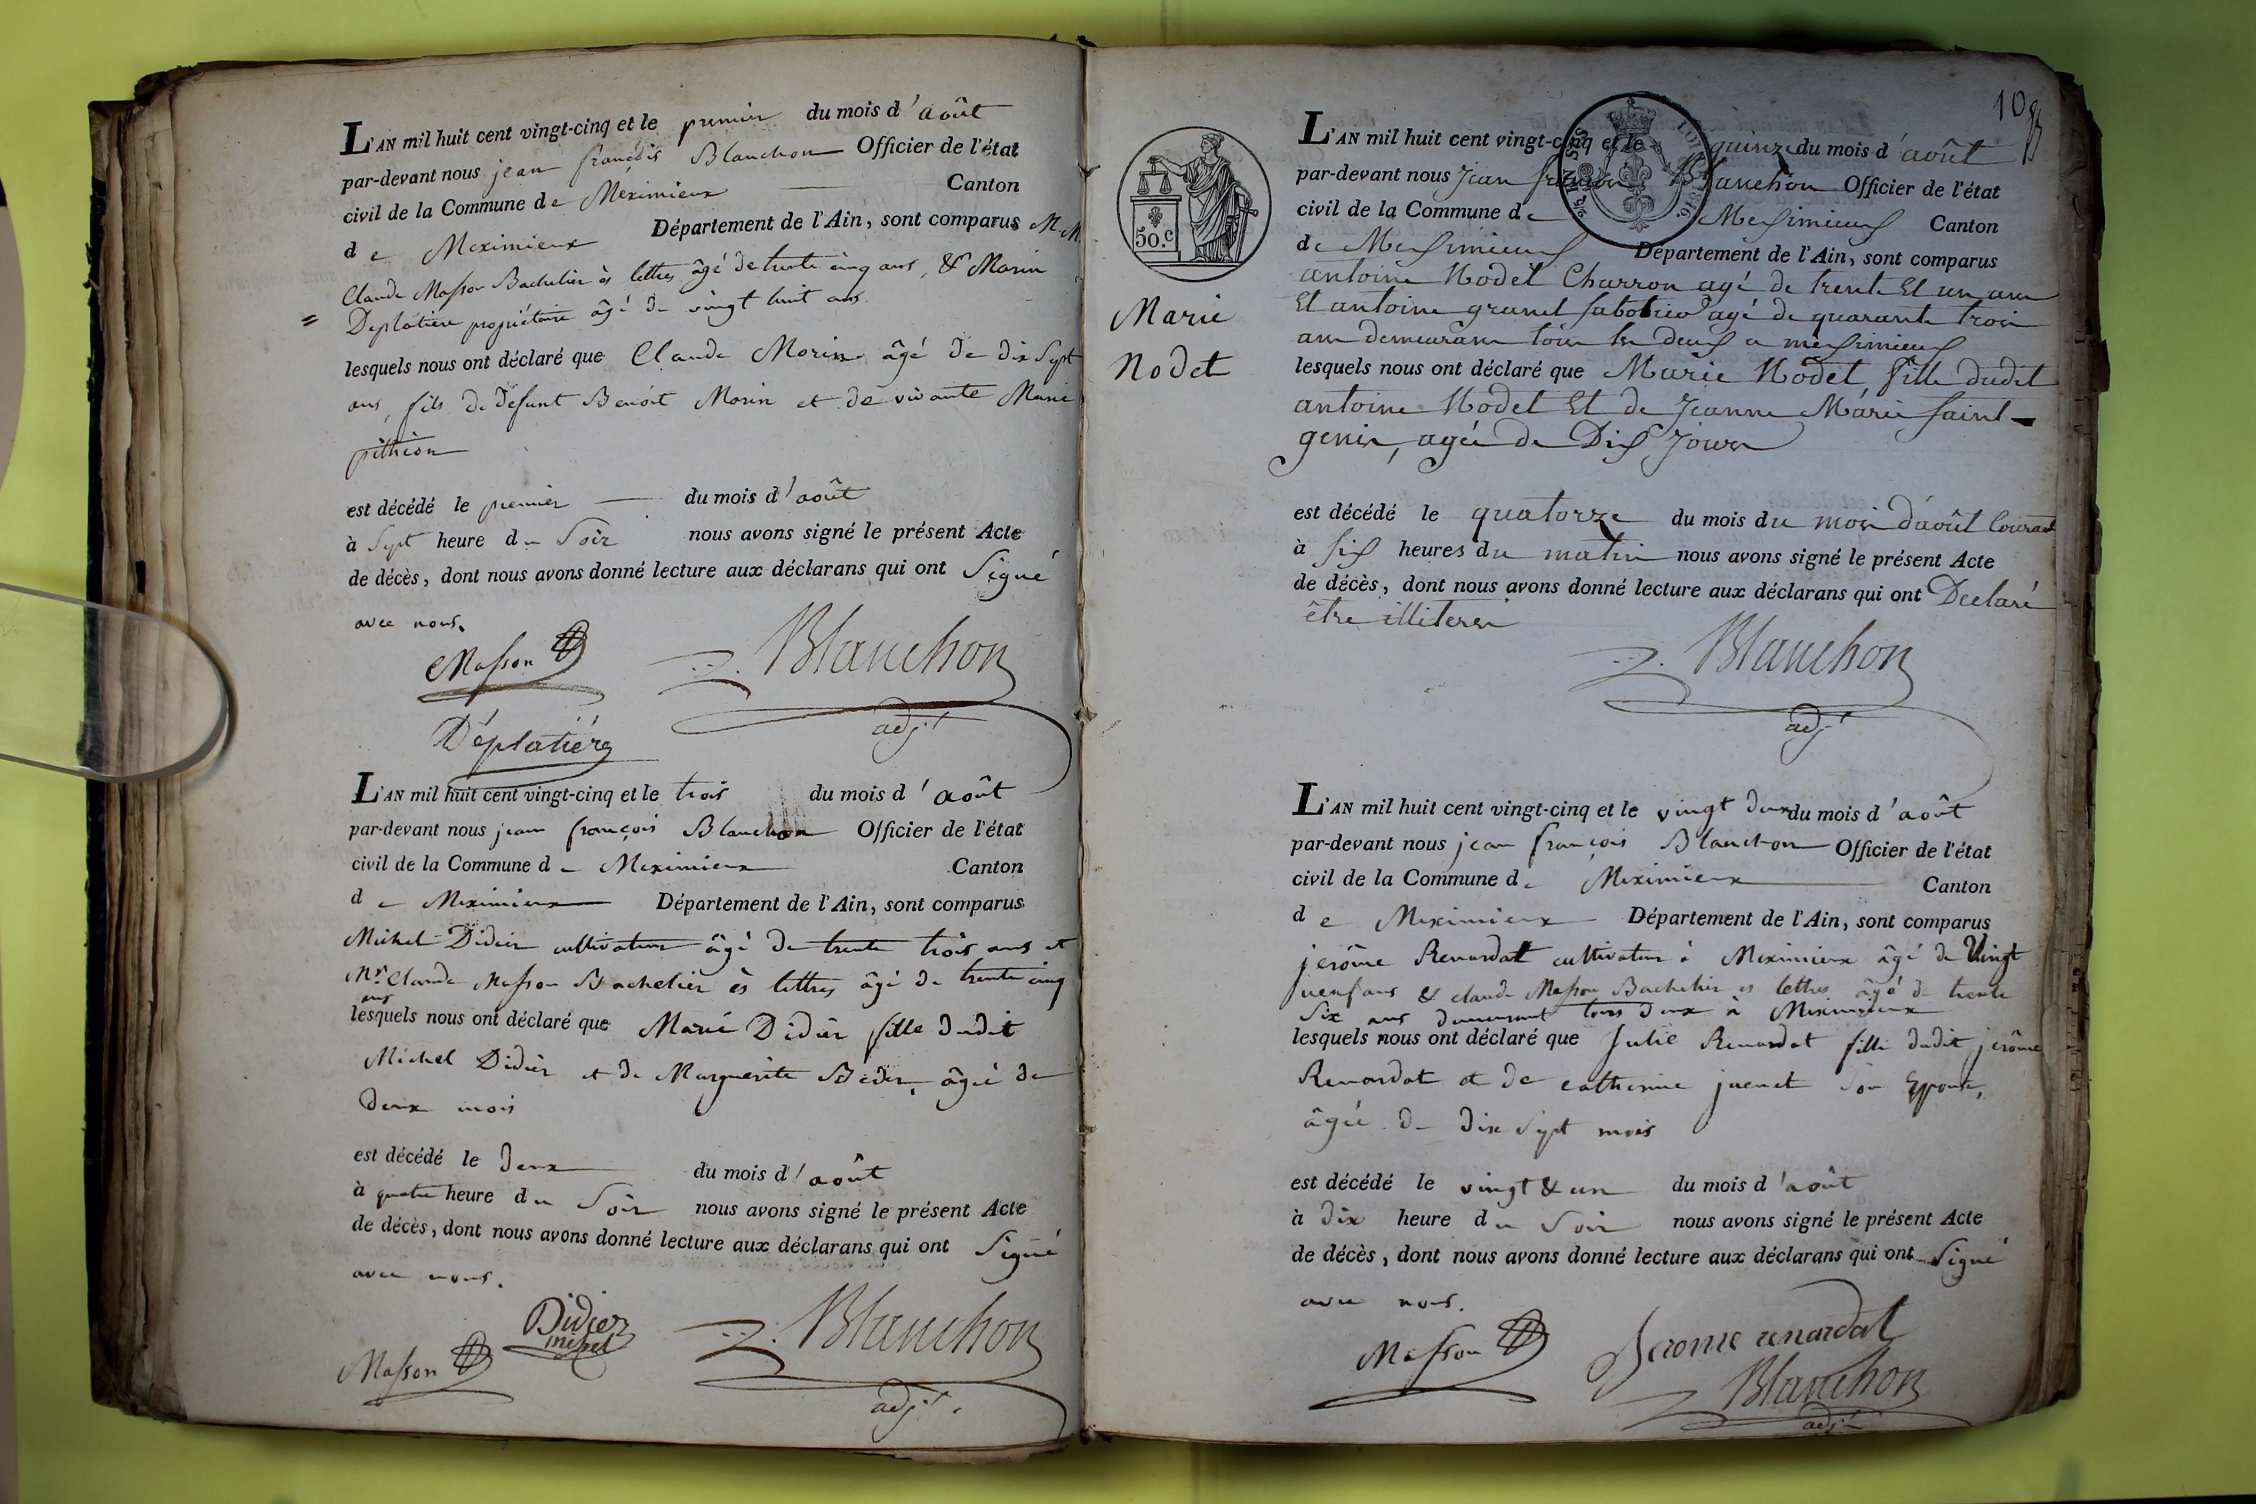 L'AN mil huit cent vingt-cinq et le premier du mois d'août
par-devant nous jean françois Blanchon Officier de l'état
civil de la Commune de Meximieux Canton
de Meximieux Département de l'Ain, sont comparus M.M.
Claude Masson Bachelier ès lettres âgé de trente cinq ans, & Marin
Deplatière propriétaire âgé de vingt huit ans.
lesquels nous ont déclaré que Claude Morin âgé de dix sept
ans, fils de défunt Benoit Morin et de vivante Marie
pithion
est décédé le premier du mois d'août
à sept heure du Soir nous avons signé le présent Acte
de décès, dont nous avons donné lecture aux déclarans qui ont Signé
avec nous.
Masson Blanchon
adj.t
Déplatière
L'AN mil huit cent vingt-cinq et le trois du mois d'août
par-devant nous jean françois Blanchon Officier de l'état
civil de la Commune de Meximieux Canton
de Meximieux Département de l'Ain, sont comparus
Michel Didier cultivateur âgé de trente trois ans et
Mr. Claude Masson Bachelier ès lettres âgé de trente cinq
ans
lesquels nous ont déclaré que Marie Didier fille dudit
Michel Didier et de Marguerite Beder, âgée de
deux mois
est décédé le deux du mois d'août
à quatre heure du Soir nous avons signé le présent Acte
de décès, dont nous avons donné lecture aux déclarans qui ont Signé
avec nous.
Didier
michel
Masson Blanchon
adj.t
10
50.c
Marie
Nodet
L'AN mil huit cent vingt-cinq et le quinze du mois d'août
par-devant nous Jean françois Blanchon Officier de l'état
civil de la Commune de Mesximieux Canton
de Mesximieux Département de l'Ain, sont comparus
antoine Nodet Charron agé de trente Et un ans
Et antoine granet sabotier agé de quarante trois
ans demeurans tous les deux a mesximieux
lesquels nous ont déclaré que Marie Nodet, fille dudit
antoine Nodet Et de Jeanne Marie saint-
genis, agée de Dix Jours
est décédé le quatorze du mois du mois d'août Courant
à six heures du matin nous avons signé le présent Acte
de décès, dont nous avons donné lecture aux déclarans qui ont Déclaré
être illiterés
Blanchon
adj.t
L'AN mil huit cent vingt-cinq et le vingt deux du mois d'août
par-devant nous jean françois Blanchon Officier de l'état
civil de la Commune de Meximieux Canton
de Meximieux Département de l'Ain, sont comparus
jerôme Renardat cultivateur à Meximieux âgé de Vingt
neuf ans & claude Masson Bachelier ès lettres âgé de trente
Six ans demeurant tous deux à Meximieux
lesquels nous ont déclaré que Julie Renardat fille dudit jerôme
Renardat et de catherine juenet son Epouse,
âgée de dix Sept mois
est décédé le vingt & un du mois d'août
à dix heure du Soir nous avons signé le présent Acte
de décès, dont nous avons donné lecture aux déclarans qui ont Signé
avec nous.
Masson Jerome renardat
Blanchon
adj.t